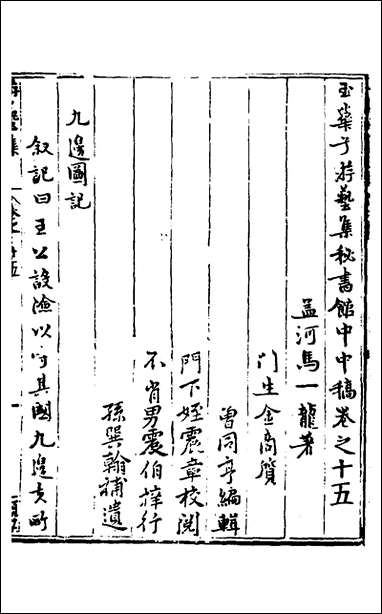 玉華子游藝集秘書館中中稿卷之十五
孟河馬一龍著
門生金商質
曾同亨編輯
門下姪震章校閱
不肖男震伯梓行
孫巽翰補遺
九邊圖記
叙記曰王公設險以守其國九邊亥所